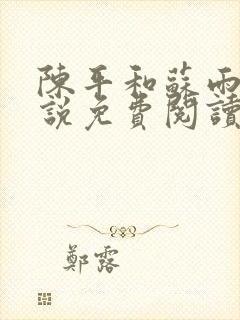 陳平和蘇雨
說免費閱讀
鄭露